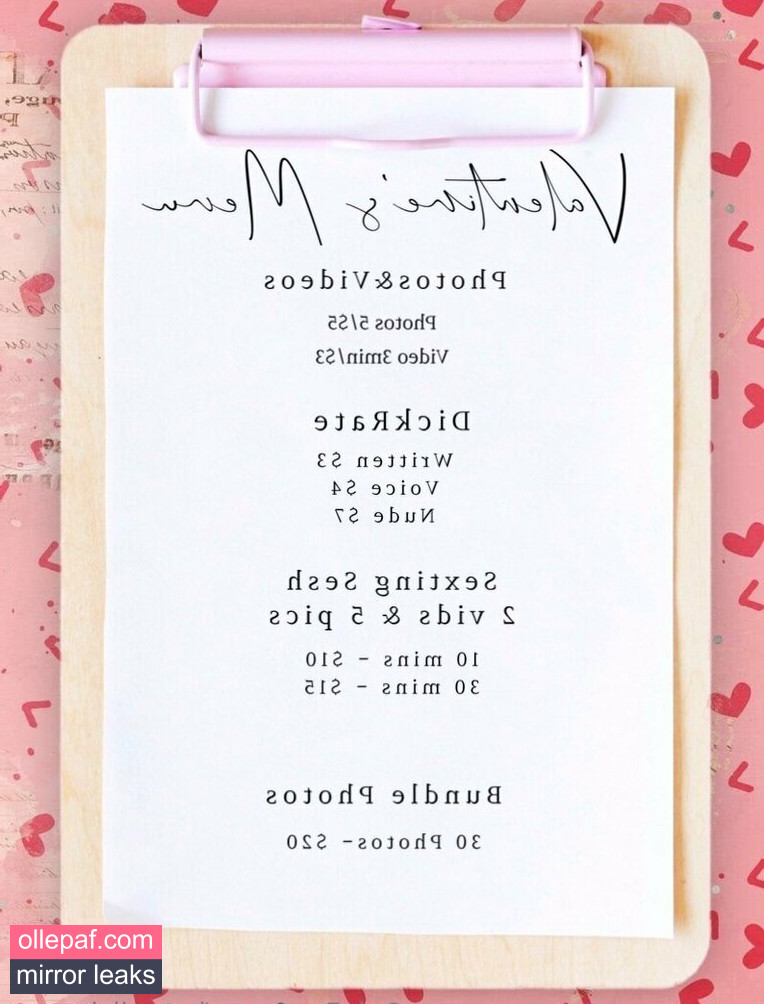 Valentine's Menu
Photos&Videos
Photos 5/$5
Video 3min/$3
DickRate
Written $3
Voice $4
Nude $7
Sexting Sesh
2 vids & 5 pics
10 mins - $10
30 mins - $15
Bundle Photos
30 Photos- $20
ollepaf.com
mirror leaks